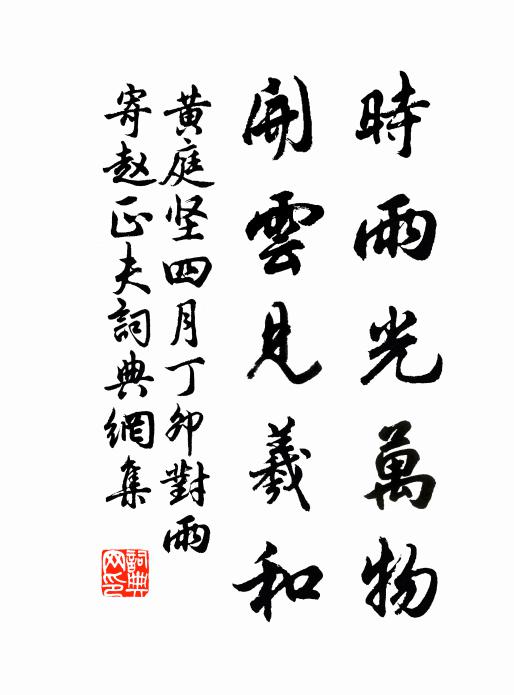 時雨光萬物
開雲見羲和
黄庭坚四月丁卯對雨
寄赵正夫詞典網集
詞典
网印